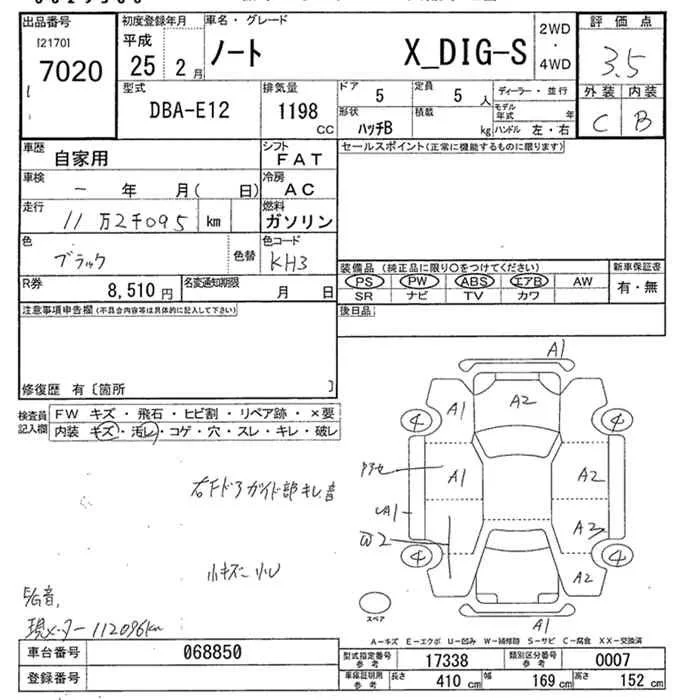 出品番号
[2170]
7020
初度登録年月
平成
25 2月
車名・グレード
ノート X_DIG-S
2WD
・
4WD
評価点
3.5
外装 内装
C B
型式
DBA-E12
排気量
1198
CC
ドア
5
定員
5人
ディーラー・並行
形状
ハッチB
積載
kg
モデル年式 年
ハンドル 左・右
車歴
自家用
シフト
FAT
セールスポイント(正常に機能するものに限ります)
車検
ー 年 月( 日)
冷房
AC
走行
11万2千095 km
燃料
ガソリン
色
ブラック
色替
色コード
KH3
R券
8,510円
名変通知期限
月 日
装備品 (純正品に限り○をつけてください)
PS PW ABS エアB AW
SR ナビ TV カワ
新車保証書
有・無
後日品
注意事項申告欄(不具合内容等は具体的に記入して下さい)
修復歴 有〔箇所 〕
検査員
記入欄
FW キズ・飛石・ヒビ割・リペア跡・×要
内装 キズ・汚レ・コゲ・穴・スレ・キレ・破レ
右Fドアガイド部キレ
小キズ 小U
現メーター112096km
A1
A1
A2
4
4
A1
A2
A1
W2
A2
4
4
A2
A1
スペア
A-キズ E-エクボ U-凹み W-補修跡 S-サビ C-腐食 XX-交換済
車台番号
068850
登録番号
型式指定番号
参考
17338
類別区分番号
参考
0007
車庫証明用
参考
長さ 410cm 幅 169cm 高さ 152cm